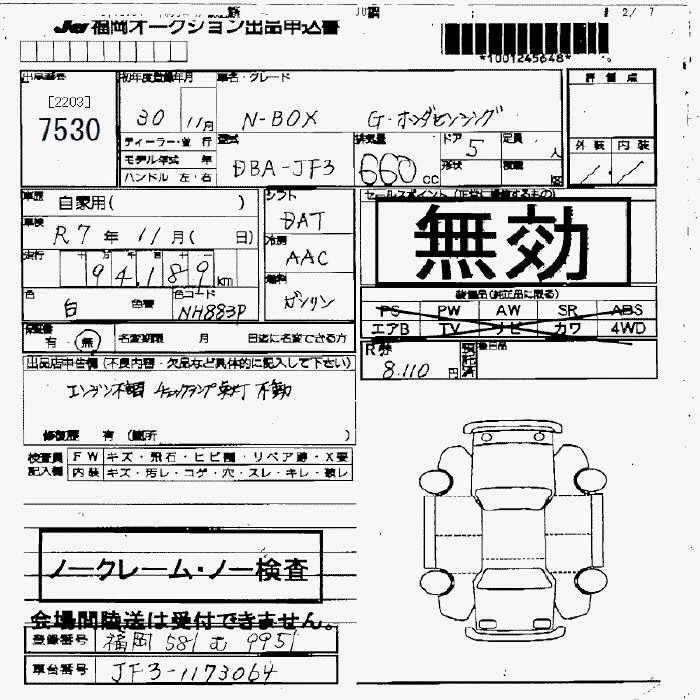 JU福岡オークション出品申込書
*1001245648*
出品番号
[2203]
7530
初年度登録年月
30 11月
車名・グレード
N-BOX G・ホンダセンシング
評価点
ディーラー・並行
モデル年式 年
ハンドル 左・右
型式
DBA-JF3
排気量
660 CC
ドア
5
形状
定員
人
積載
kg
外装 内装
車歴
自家用( )
車検
R7年 11月( 日)
走行
十 万 千 百 十 一
94,189 km
色
白 色替
色コード
NH883P
シフト
DAT
冷房
AAC
燃料
ガソリン
セールスポイント(正常に機能するもの)
無効
装備品(純正品に限る)
PS PW AW SR ABS
エアB TV ナビ カワ 4WD
保証書
有・無
名変期限 月 日迄に名変できる方
R券
8,110円
預託済
後日品
出品店申告欄(不良内容・欠品など具体的に記入して下さい)
エンジン不調 チェックランプ点灯 不動
修復歴 有(箇所 )
検査員記入欄
FW キズ・飛石・ヒビ割・リペア跡・X要
内装 キズ・汚レ・コゲ・穴・スレ・キレ・破レ
ノークレーム・ノー検査
会場間陸送は受付できません。
登録番号 福岡 581 む 9951
車台番号 JF3-1173064